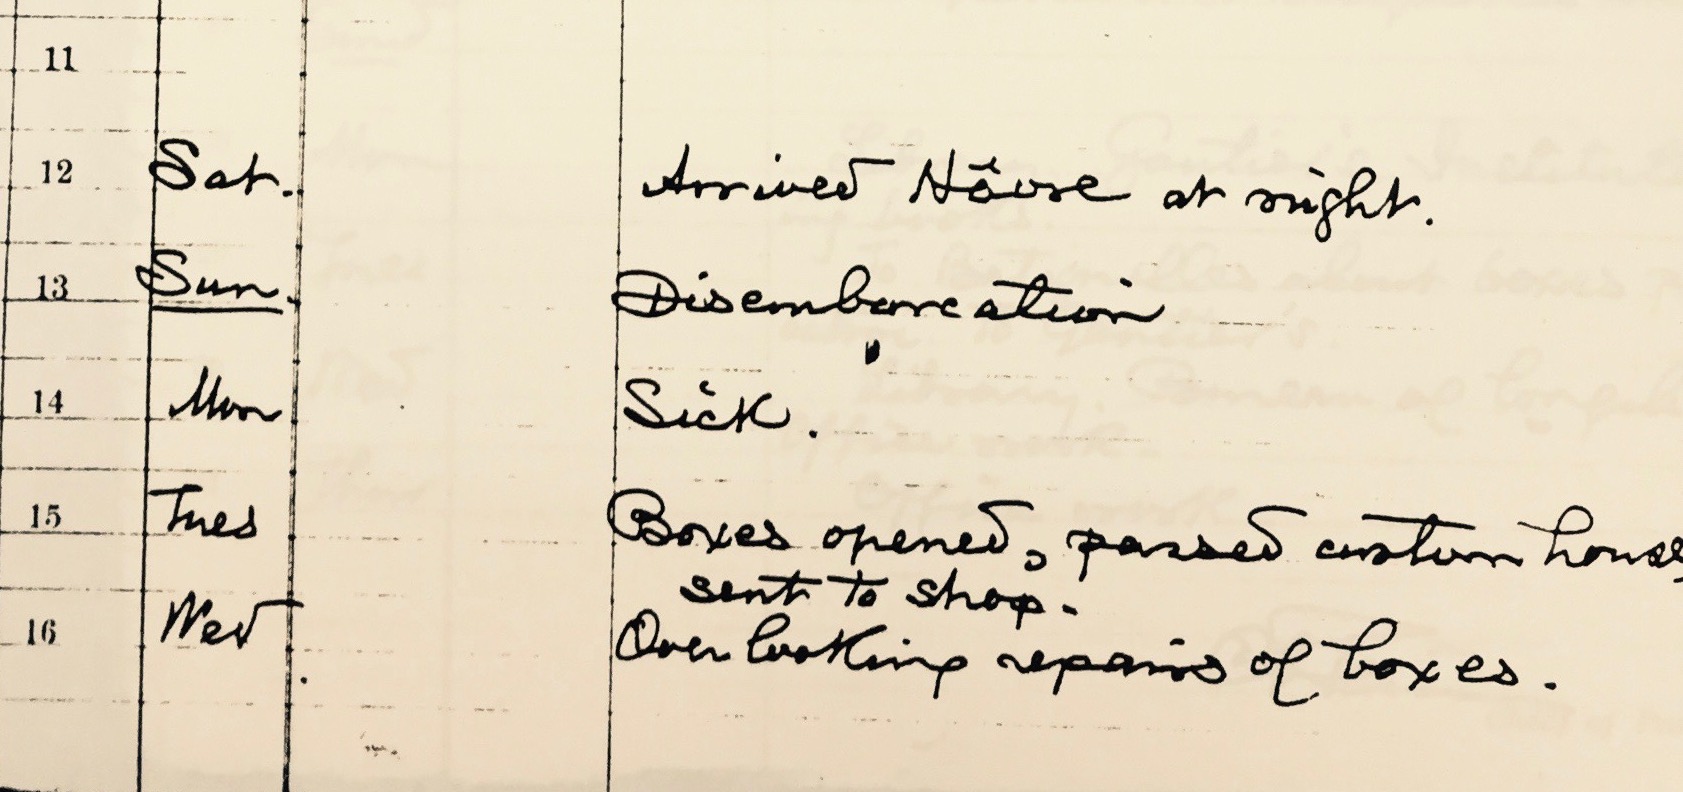 11
12 Sat. Arrived Hâvre at night.
13 Sun. Disembarcation
14 Mon Sick.
15 Tues Boxes opened, passed custom house,
sent to shop.
16 Wed Overlooking repairs of boxes.